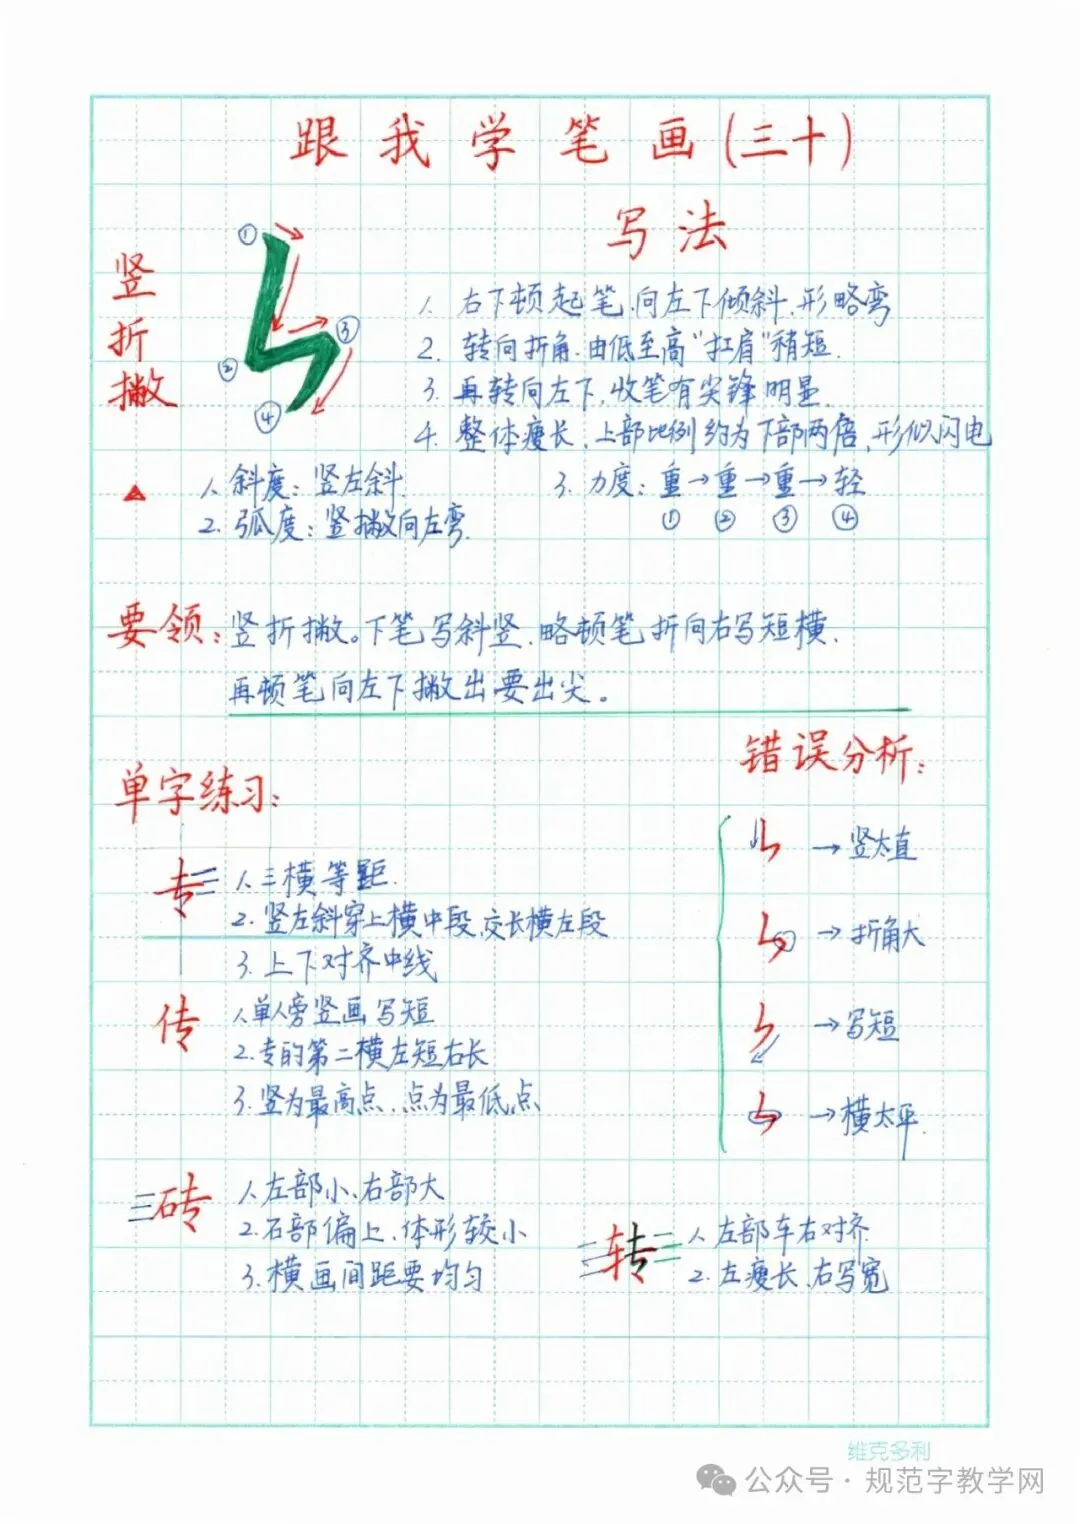 跟我学笔画(三十)
写法
竖折撇
① ② ③ ④
1. 右下顿起笔,向左下倾斜,形略弯
2. 转向折角,由低至高"扛肩"稍短.
3. 再转向左下,收笔有尖锋明显.
4. 整体瘦长,上部比例约为下部两倍,形似闪电
1. 斜度:竖左斜.
2. 弧度:竖撇向左弯.
3. 力度:重→重→重→轻
① ② ③ ④
要领:竖折撇。下笔写斜竖,略顿笔折向右写短横,
再顿笔向左下撇出要出尖。
单字练习:
专
1. 三横等距.
2. 竖左斜穿上横中段,交长横左段
3. 上下对齐中线
传
1. 单人旁竖画写短
2. 专的第二横左短右长
3. 竖为最高点,点为最低点
砖
1. 左部小、右部大
2. 石部偏上,体形较小
3. 横画间距要均匀
转
1. 左部车右对齐
2. 左瘦长、右写宽
错误分析:
→竖太直
→折角大
→写短
→横太平.
维克多利
公众号·规范字教学网